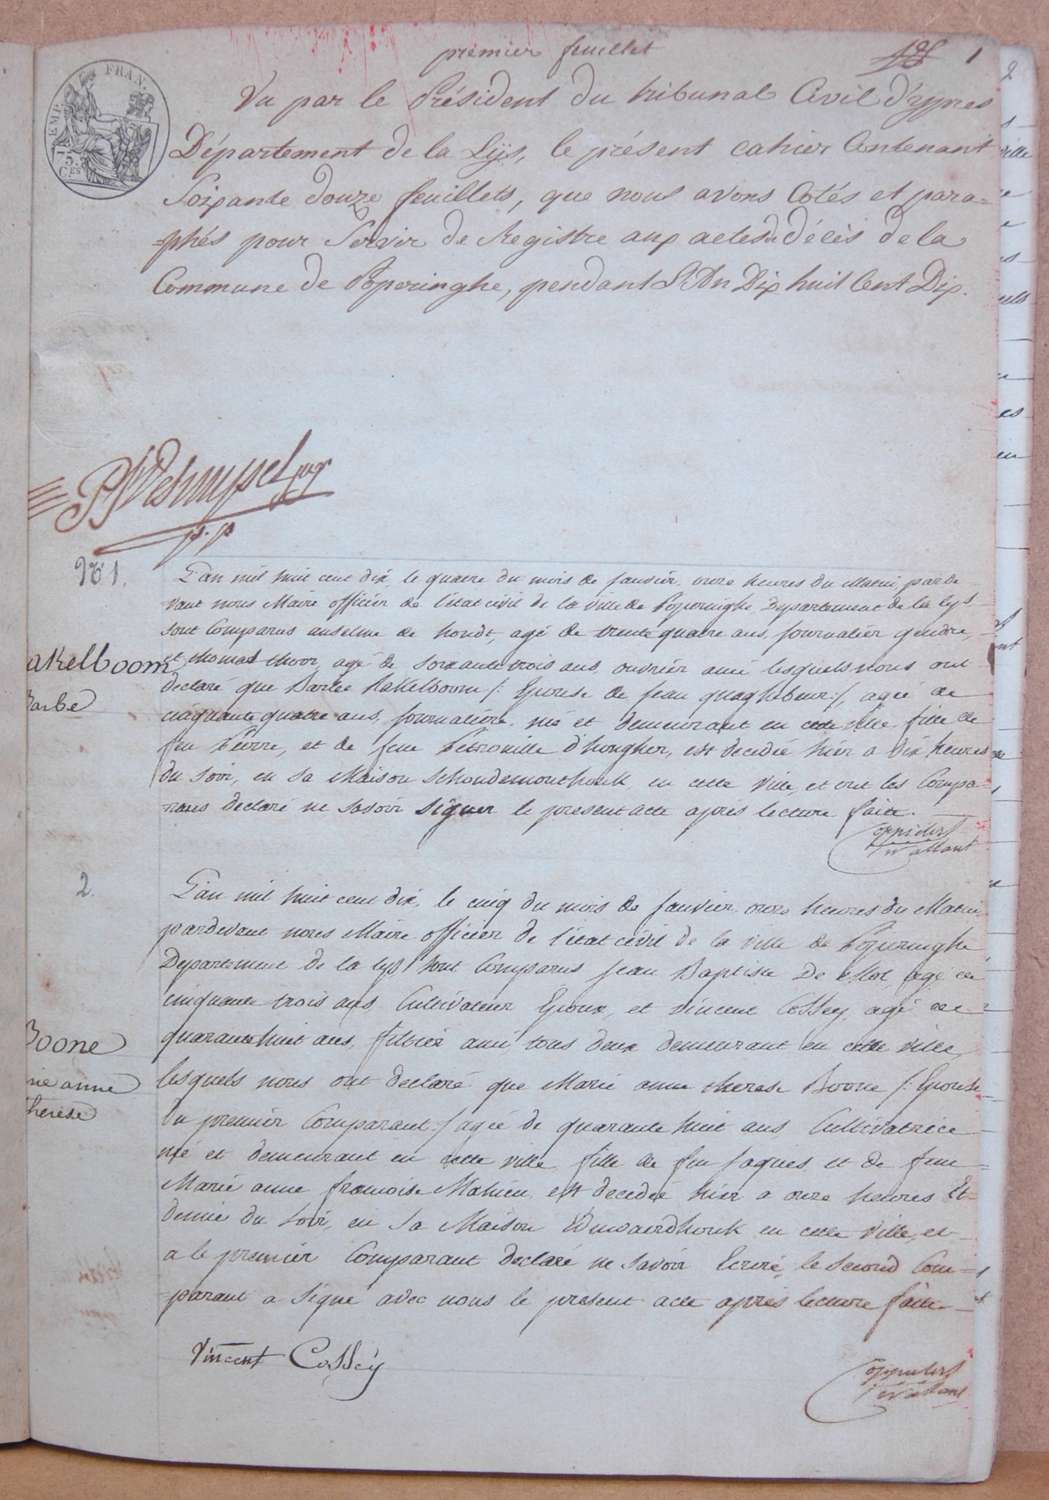 premier feuillet
1
TIMB. FRAN.
75
Vu par le Président du tribunal Civil d'ypres
Département de la Lÿs, le présent cahier Contenant
Soixante douze feuillets, que nous avons Cotés et para=
=phés pour Servir de Registre aux actes de décès de la
Commune de Poperinghe, pendant l'An Dix huit Cent Dix.
N° 1.
L'an mil huit cent dix, le quatre du mois de janvier onze heures du matin parde
vant nous Maire officier de l'état civil de la ville de Poperinghe Departement de la lys
sont Comparus anselme de houdt, agé de trente quatre ans, journalier gendre,
et thomas thoor, agé de soixante trois ans ouvrier ami lesquels nous ont
akelboom
declaré que Barbe Hakelboom /: Epouse de jean quaghebeur :/, agée de
Barbe
cinquante quatre ans, journalière, née et demeurant en cette ville fille de
feu Pierre, et de feue Petronille d'hongher, est decedée hier a dix heures
du soir, en sa Maison Schoudemonthouk en cette ville, et ont les Compa-
rans declaré ne savoir signer le present acte après lecture faite.
2.
L'an mil huit cent dix, le cinq du mois de janvier onze heures du Matin
pardevant nous Maire officier de l'état civil de la ville de Poperinghe
Departement de la lys sont Comparus Jean Baptiste De Mol, agé de
cinquante trois ans Cultivateur Epoux, et Vincent Cossey, agé de
quarante huit ans, filtier ami tous deux demeurant en cette ville,
Boone
lesquels nous ont declaré que Marie anne therese Boone /: Epouse
rie anne
therese
du premier Comparant :/ agée de quarante huit ans Cultivatrice
née et demeurant en cette ville fille de feu Jaques et de feue
Marie anne françoise Mahieu est decedée hier a onze heures Et
demie du soir, en sa Maison Edewaerdhouk en cette ville, et
a le premier Comparant declaré ne savoir Ecrire, le second Com=
parant a signé avec nous le present acte après lecture faite
Vincent Cossey